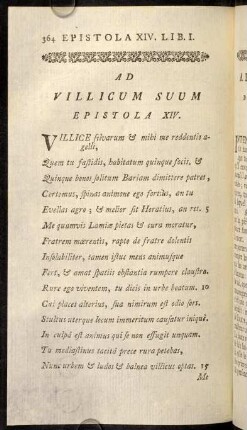 364 EPISTOLA XIV. LIB. I.
AD
VILLICUM SUUM
EPISTOLA XIV.
VILLICE silvarum & mihi me reddentis a-
gelli,
Quem tu fastidis, habitatum quinque focis, &
Quinque bonos solitum Bariam dimittere patres,
Certemus, spinas animone ego fortius, an tu
Evellas agro; & melior sit Horatius, an res. 5
Me quamvis Lamiæ pietas & cura moratur,
Fratrem mærentis, rapto de fratre dolentis
Insolabiliter, tamen istuc mens animusque
Fert, & amat spatiis obstantia rumpere claustra.
Rure ego viventem, tu dicis in urbe beatum. 10
Cui placet alterius, sua nimirum est odio sors.
Stultus uterque locum immeritum causatur iniquè.
In culpâ est animus qui se non effugit unquam.
Tu mediastinus tacitâ prece rura petebas,
Nunc urbem & ludos & balnea villicus optas. 15
Me